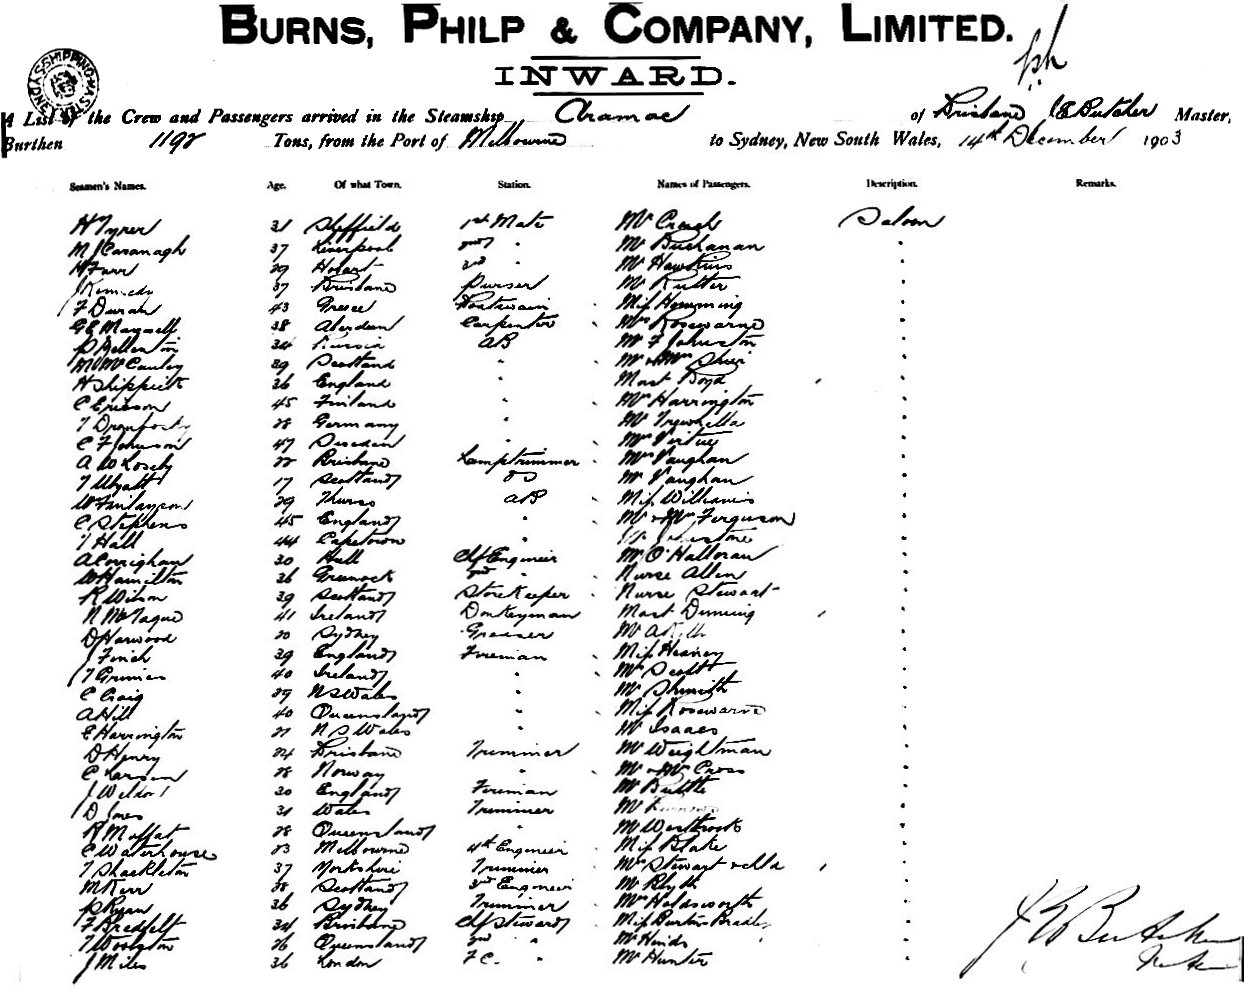 BURNS, PHILP & COMPANY, LIMITED.
INWARD.
A List of the Crew and Passengers arrived in the Steamship Aramac of Brisbane J E Butcher Master,
Burthen 1192 Tons, from the Port of Melbourne to Sydney, New South Wales, 14th December 1903
Seamen's Names. Age. Of what Town. Station. Names of Passengers. Description. Remarks.
H Tyrer 31 Sheffield 1st Mate Mr Creagh Saloon
M J Cavanagh 37 Liverpool 2nd " Mr Buchanan "
H Farr 29 Hobart 3rd " Mr Hawkins "
J Kennedy 37 Brisbane Purser Mr Rutter "
F Duran 43 Greece Boatswain Miss Hemming "
G E Maxwell 38 Aberdeen Carpenter Mrs Rosewarne "
34 Russia AB Mr F Johnston "
M McCauley 29 Scotland " Mr & Mrs "
H Shippick 26 England " Mast Boyd "
C Ericson 45 Finland " Mrs Harrington "
28 Germany " Mr Trewhella "
C F Johnson 47 Sweden " Mrs Virtue "
A W Losely 22 Brisbane Lamptrimmer Mrs Vaughan "
T Wyatt 17 Scotland OS Mr Vaughan "
W Finlayson 29 Thurso AB Miss Williams "
C Stephens 45 England " Mr & Mrs Ferguson "
T Hall 44 Capetown " Johnstone "
A Corrigham 30 Hull Chf Engineer Mr O'Halloran "
W Hamilton 36 Greenock 2nd " Nurse Allen "
R Wilson 39 Scotland Storekeeper Nurse Stewart "
N McTague 41 Ireland Donkeyman Mast Dunning "
D Harwood 20 Sydney Greaser Mr A "
J Finch 39 England Fireman Miss Heaney "
T Grimes 40 Ireland " Mrs Scott "
C Craig 29 N S Wales " Mr Shmith "
A Hill 40 Queensland " Miss Rosewarne "
E Harrington 21 N S Wales " Mr Isaacs "
D Henry 24 Brisbane Trimmer Mr Weightman "
C Larsen 28 Norway " Mr & Mrs Cross "
J Weldon 30 England Fireman Mr Buttle "
D Jones 31 Wales Trimmer Mr "
R Moffat 28 Queensland " Mr Westbrook "
C Waterhouse 23 Melbourne 4th Engineer Miss Blake "
T Shackleton 37 Yorkshire Trimmer Mrs Stewart & chld "
M Kerr 28 Scotland 3rd Engineer Mr Blyth "
P Ryan 36 Sydney Trimmer Mrs Holdsworth "
F Bredfelt 34 Brisbane Chf Steward Miss Burton Bradley "
T Woolgton 26 Queensland 2nd " Mr Hinds "
J Miles 36 London F C. " Mr Hunter "
J E Butcher
Master